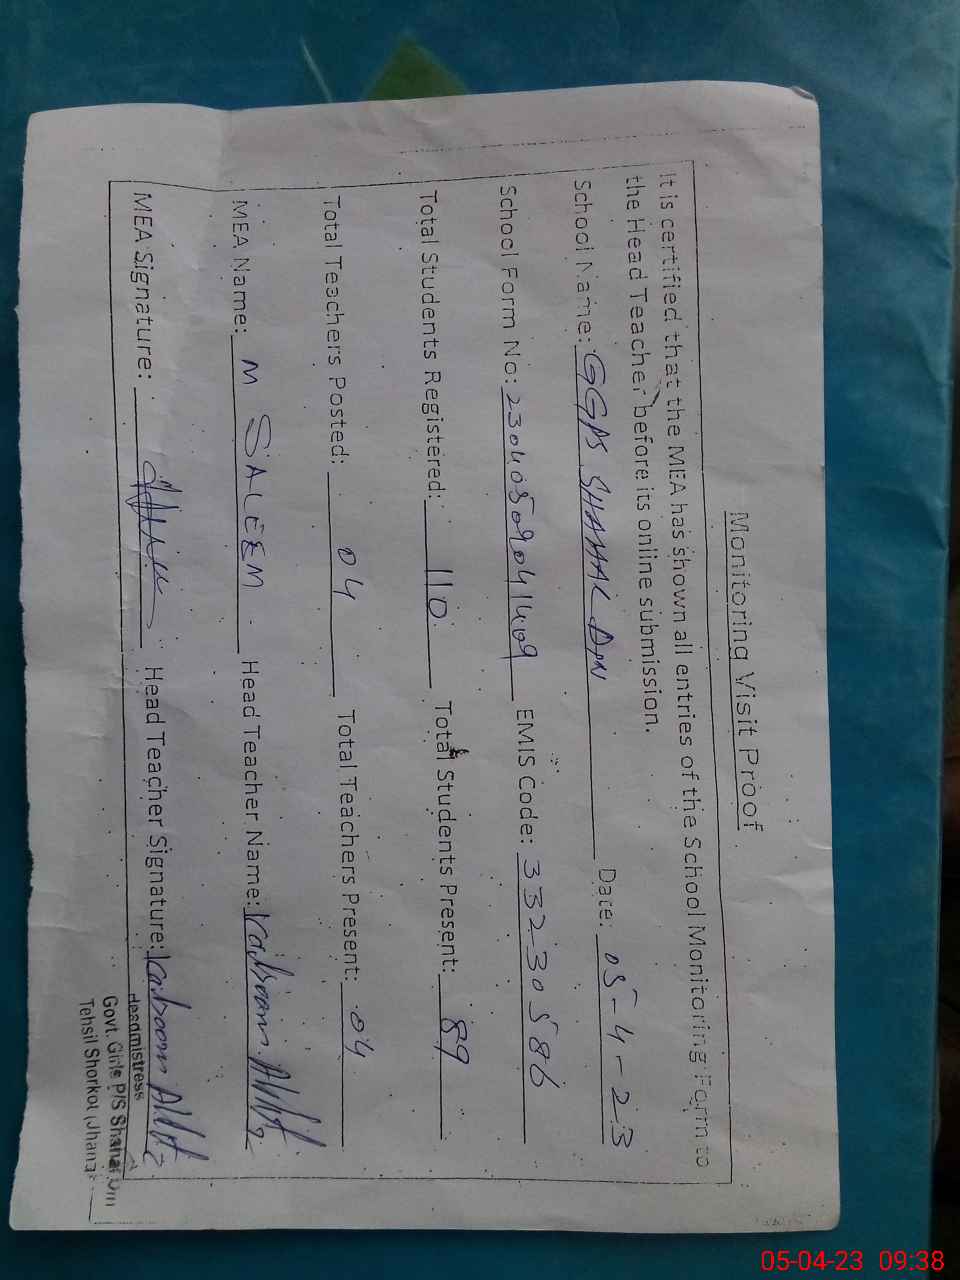 Monitoring Visit Proof
It is certified that the MEA has shown all entries of the School Monitoring Form to
the Head Teacher before its online submission.
School Name: GGPS SHAHAL DIN Date: 05-4-23
School Form No: 23040509041409 EMIS Code: 33230586
Total Students Registered: 110 Total Students Present: 89
Total Teachers Posted: 04 Total Teachers Present: 04
MEA Name: M SALEEM Head Teacher Name:
MEA Signature: Head Teacher Signature:
Headmistress
Govt. Girls P/S Din
Tehsil Shorkot
05-04-23 09:38